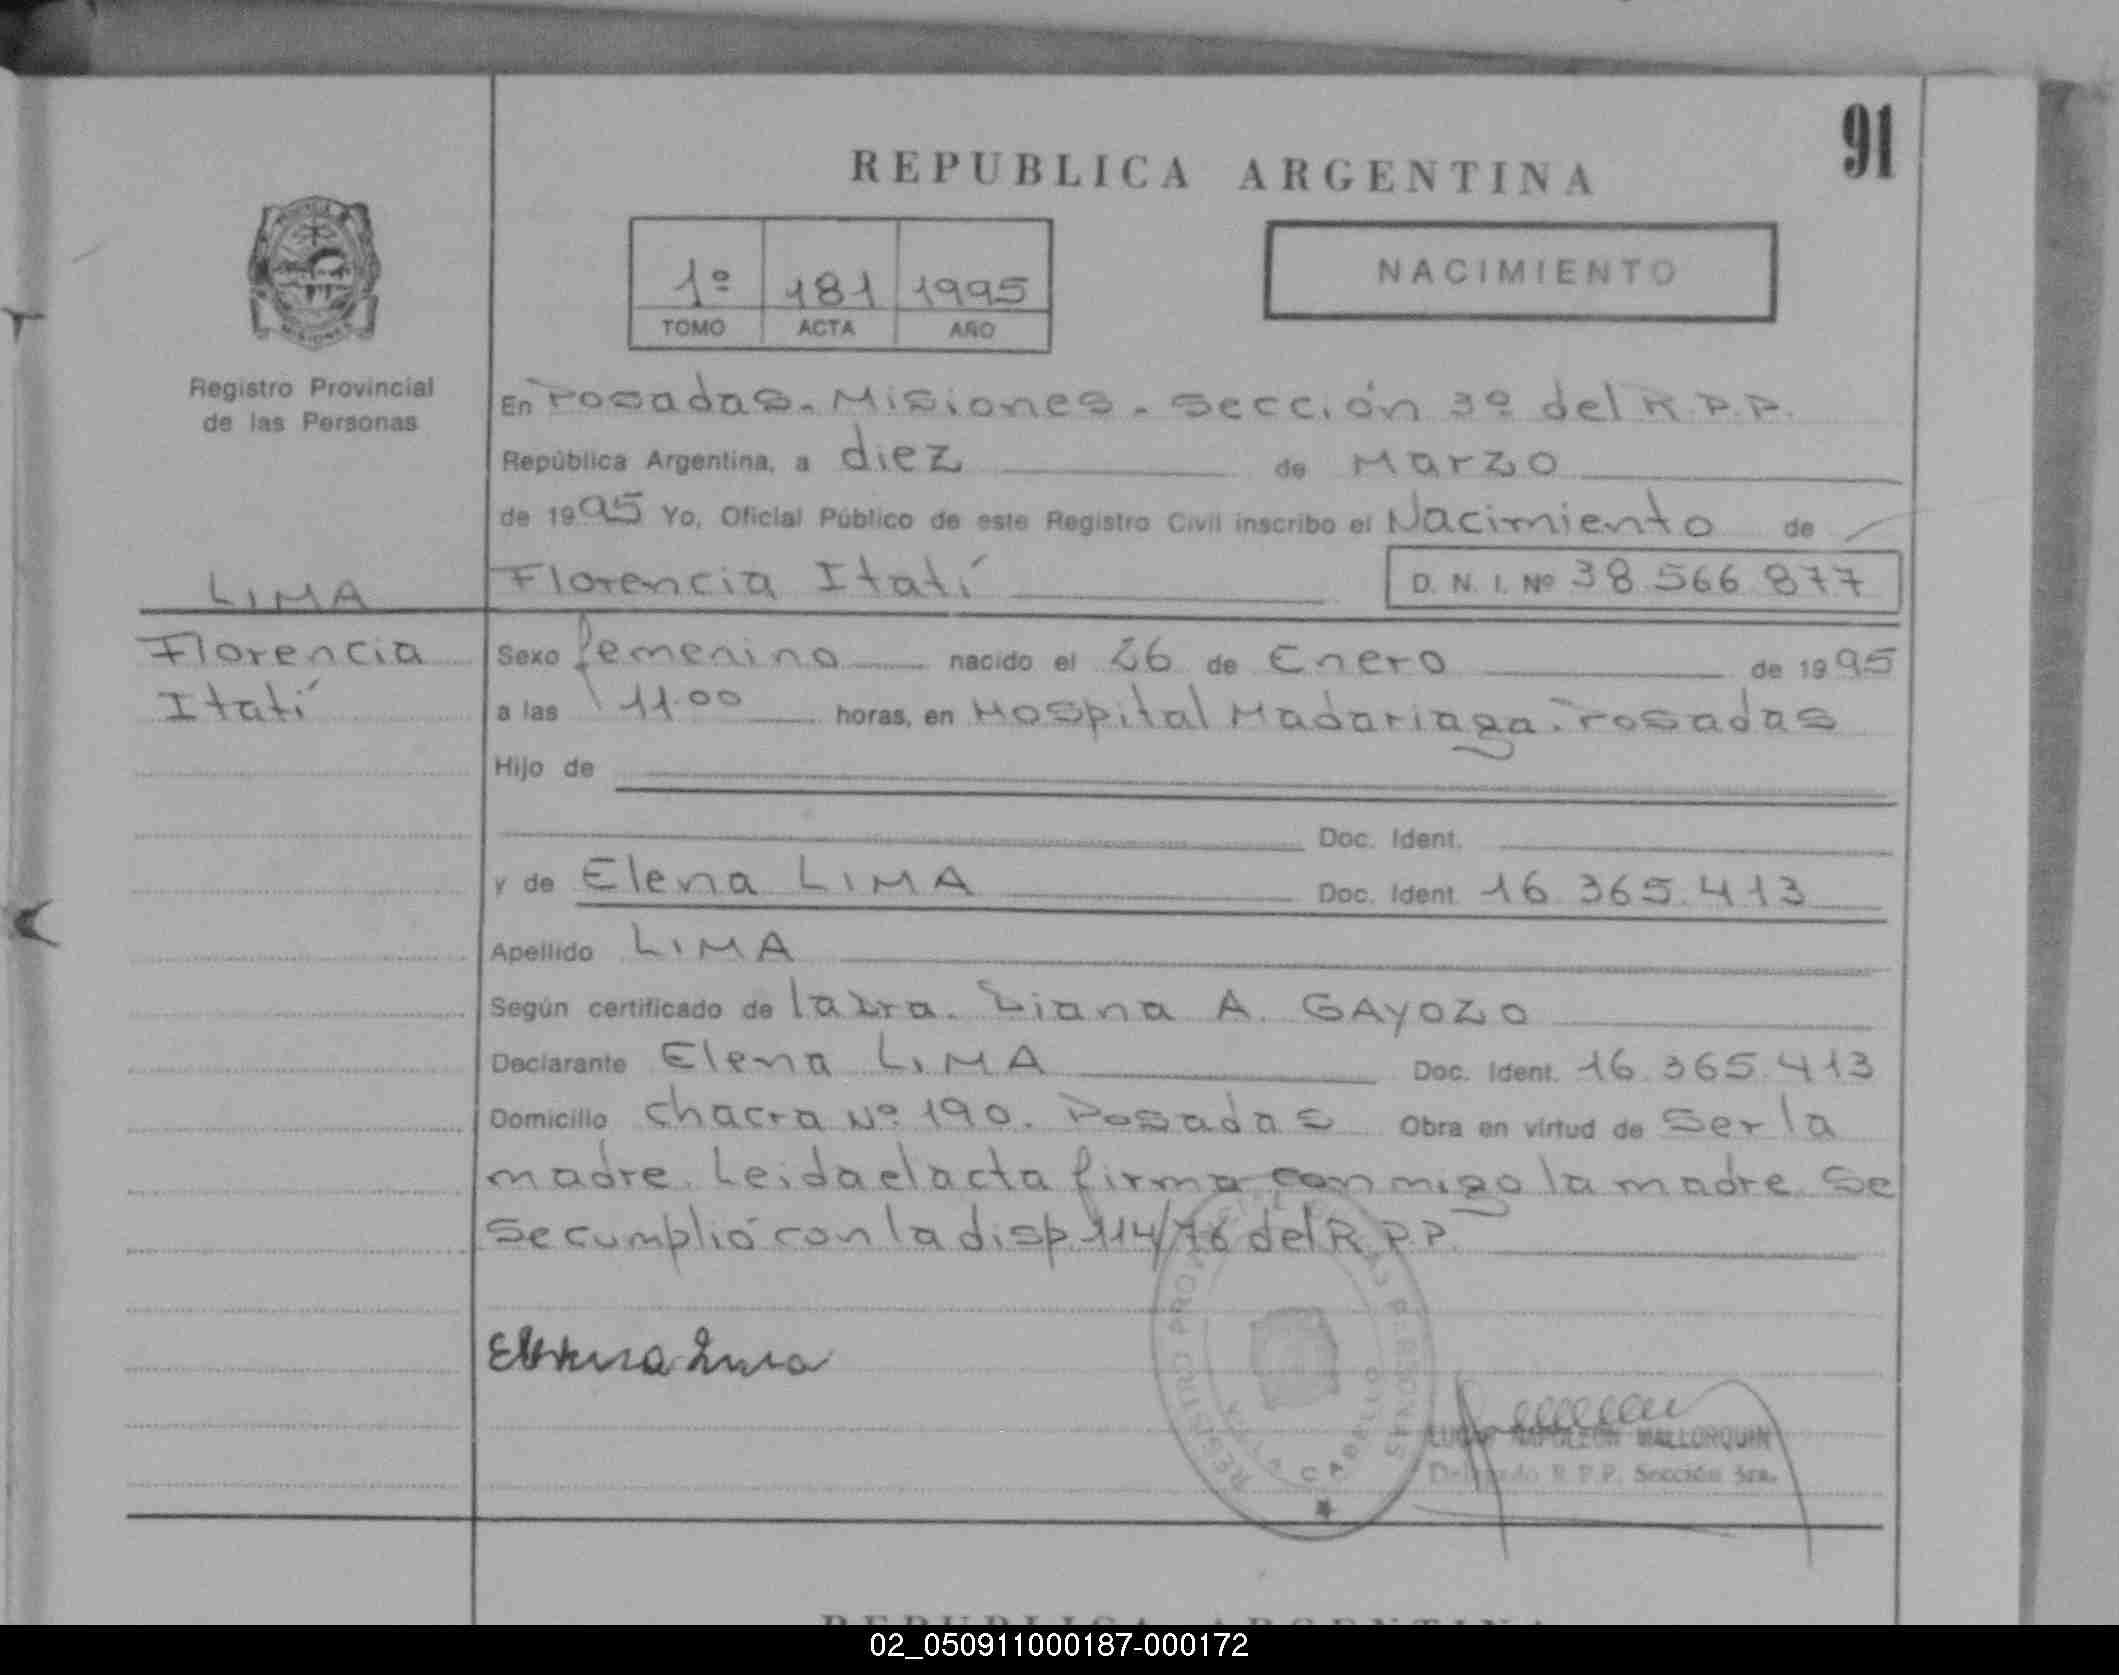 91
REPUBLICA ARGENTINA
1º 181 1995
TOMO ACTA AÑO
NACIMIENTO
MISIONES
Registro Provincial
de las Personas
En Posadas. Misiones. Sección 3º del R.P.P.
República Argentina, a diez de Marzo
de 1995 Yo, Oficial Público de este Registro Civil inscribo el Nacimiento de
LIMA Florencia Itatí D. N. I. Nº 38 566 877
Florencia Sexo femenino nacido el 26 de Enero de 1995
Itatí a las 11.00 horas, en Hospital Madariaga. Posadas
Hijo de
Doc. Ident.
y de Elena LIMA Doc. Ident. 16 365.413
Apellido LIMA
Según certificado de la Dra. Liana A. GAYOZO
Declarante Elena LIMA Doc. Ident. 16 365.413
Domicilio Chacra Nº 190. Posadas Obra en virtud de ser la
madre. Leida el acta firma conmigo la madre. Se
se cumplió con la disp. 114/76 del R.P.P.
REGISTRO PROVINCIAL DE LAS PERSONAS
CABELLO
LUCAS NAPOLEON MALLORQUIN
Delegado R.P.P. Sección 3ra.
REPUBLICA ARGENTINA
02_050911000187-000172